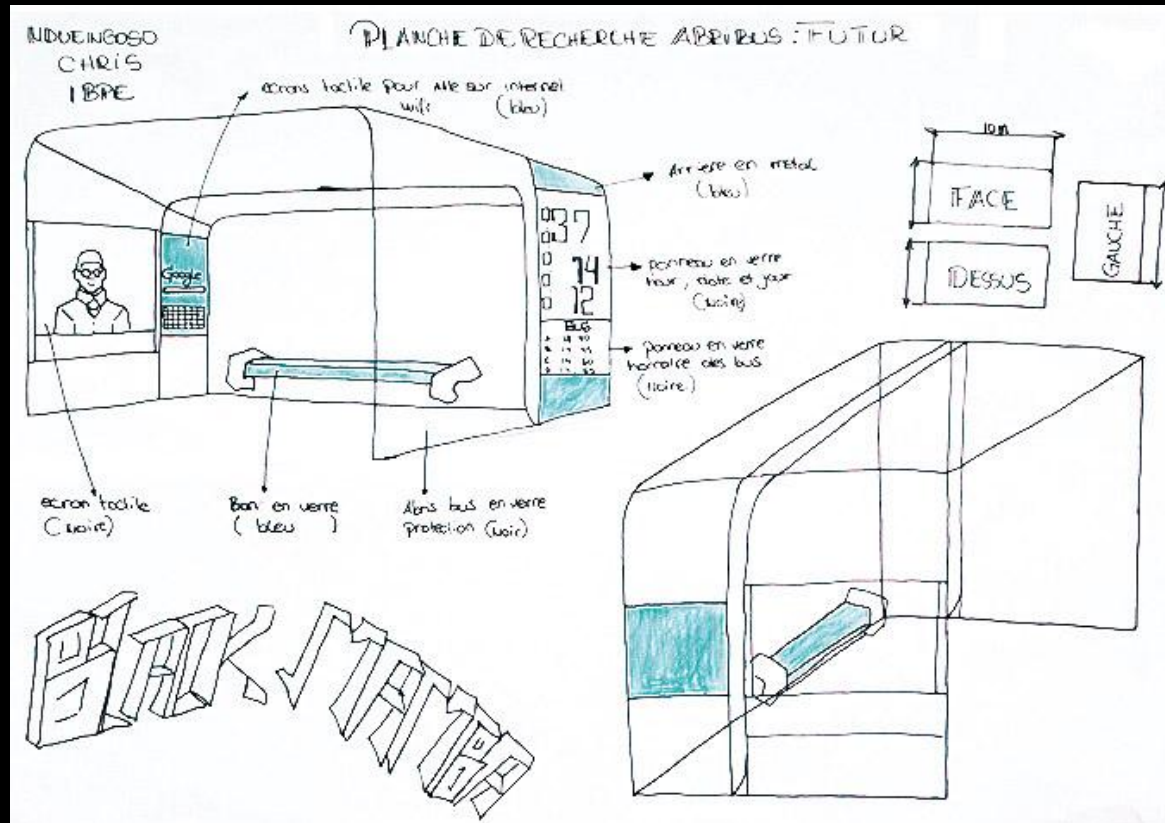 NDUEINGOSO
CHRIS
1BPE
PLANCHE DE RECHERCHE ABRIBUS : FUTUR
ecrans tactile pour sur internet
wifi (bleu)
Arriere en metal
(bleu)
Google
37
14
12
BUS
panneau en verre
heur, date et jour
(noire)
panneau en verre
horraire des bus
(noire)
10m
FACE
DESSUS
GAUCHE
ecran tactile
(noire)
Ban en verre
(bleu )
Abris bus en verre
protection (noir)
BLACK MAMBA